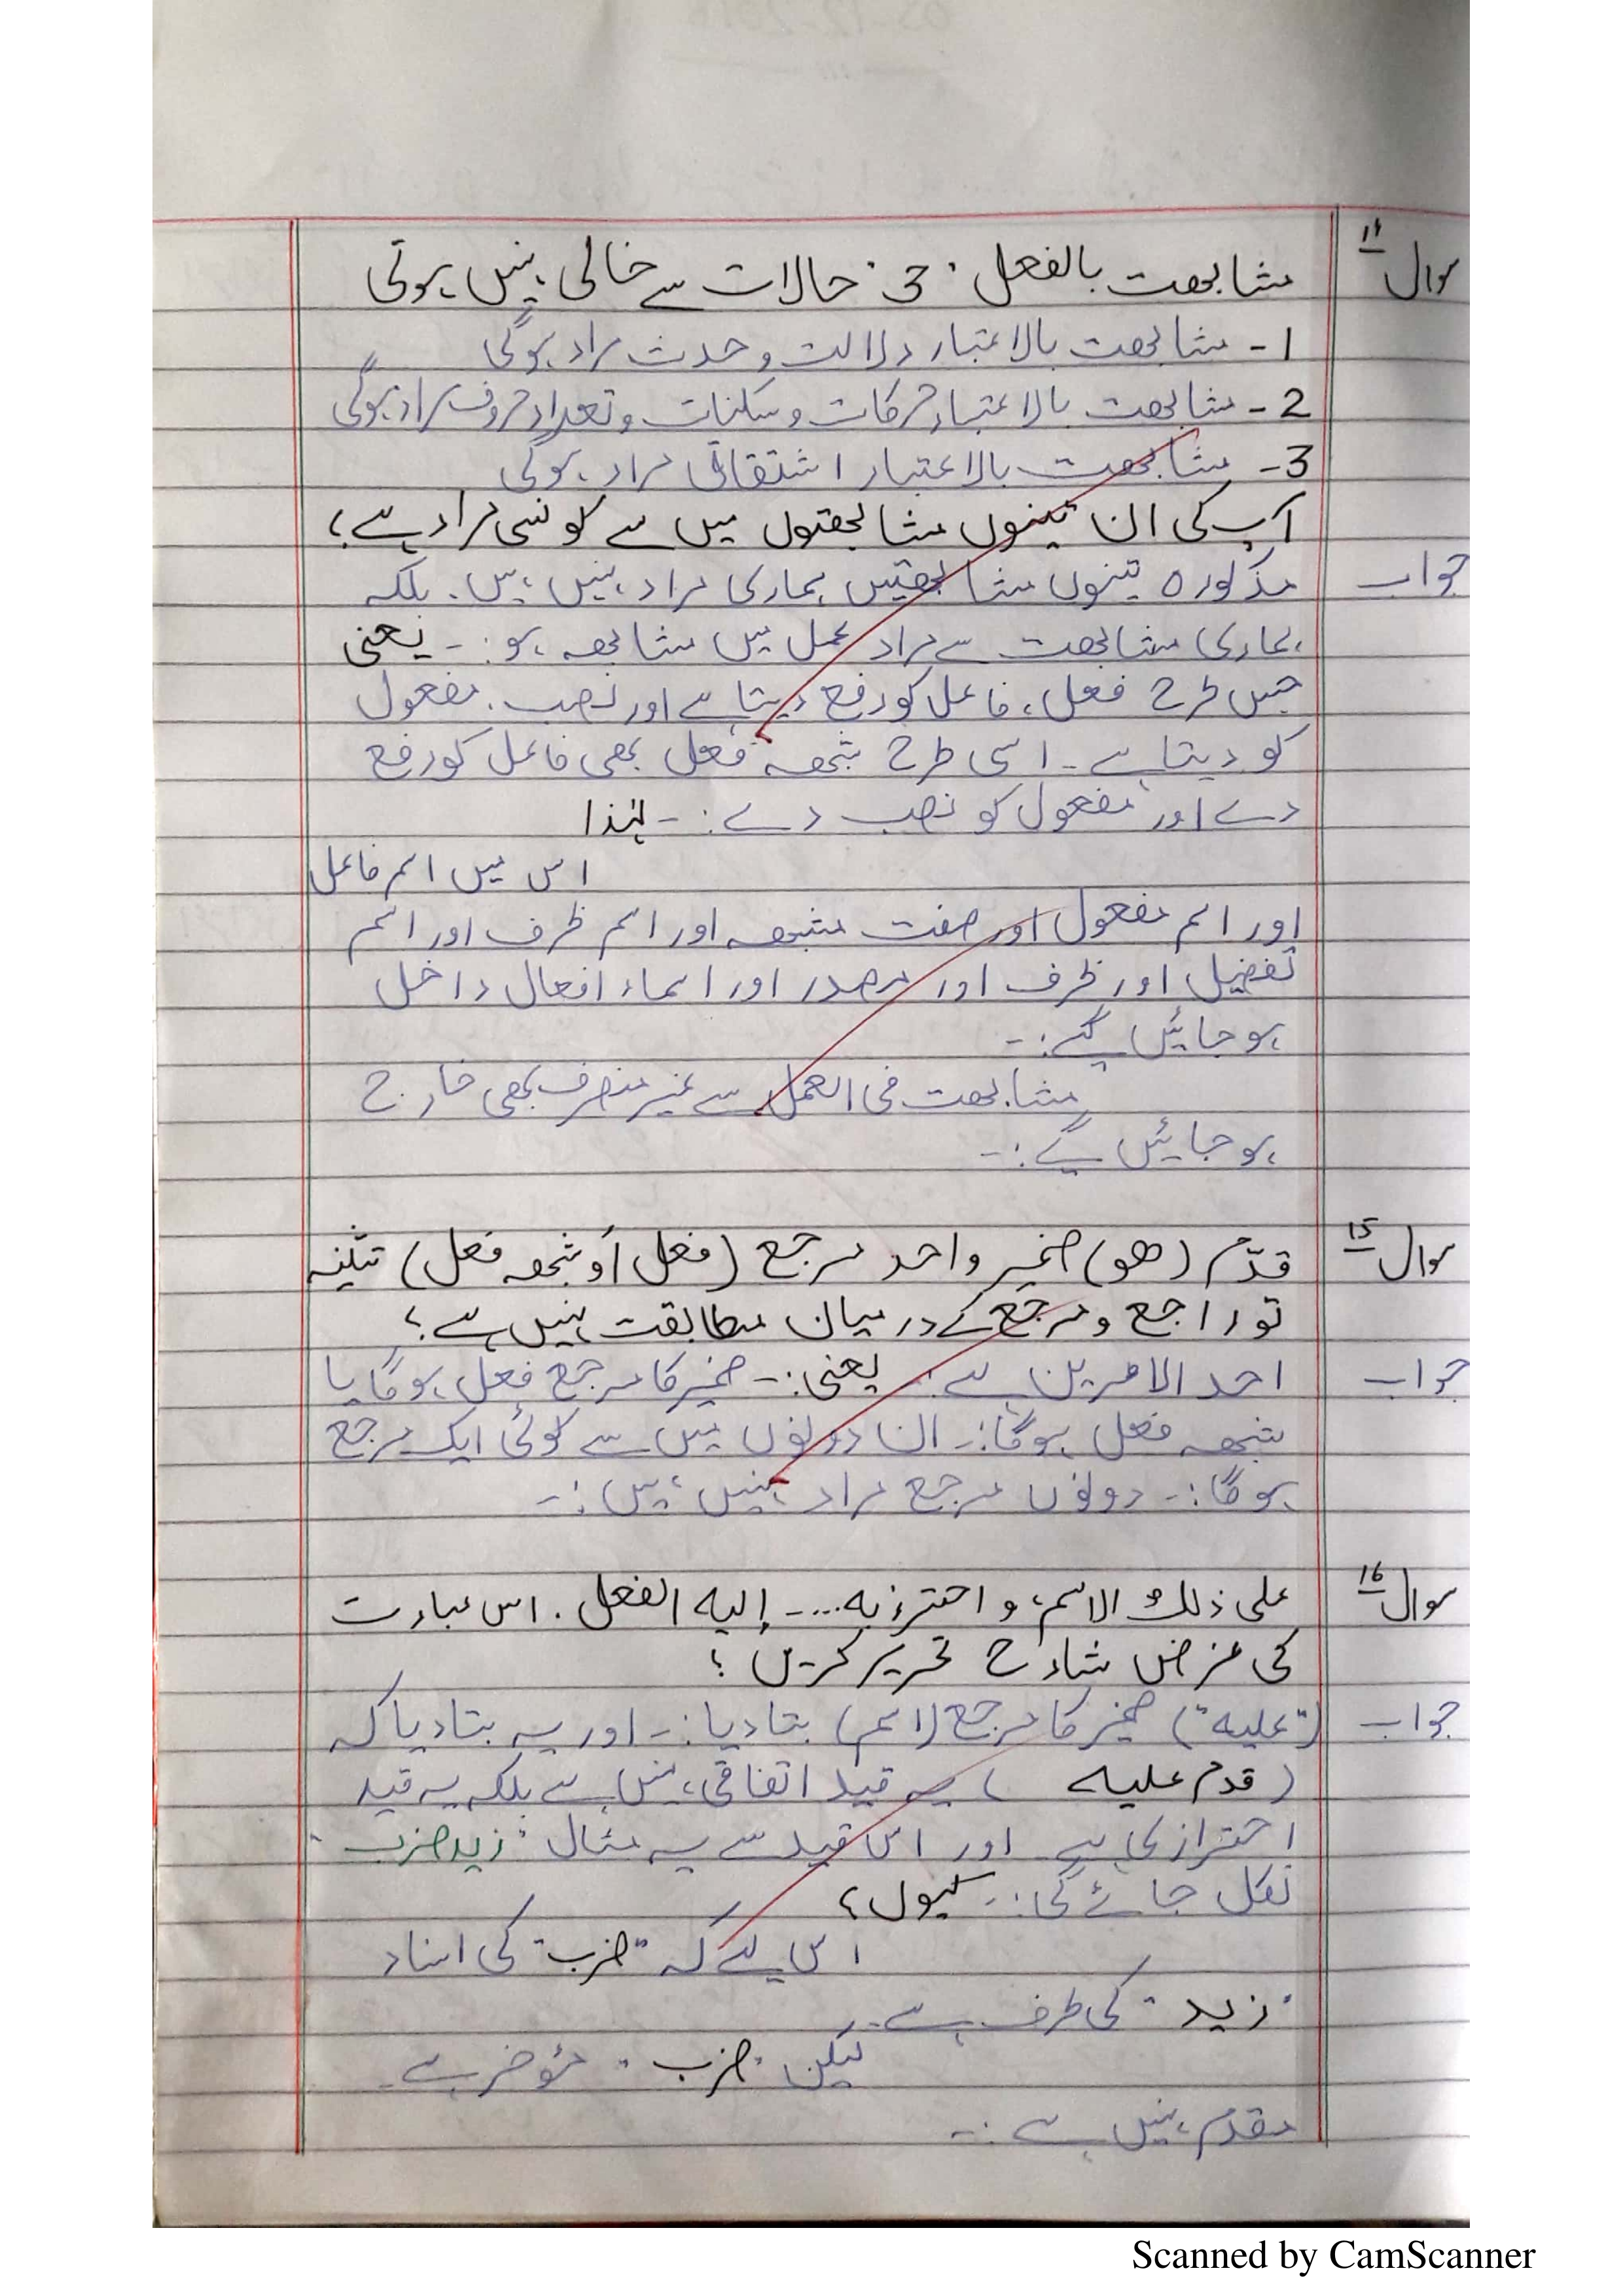 سوال ۱۴ مشابھت بالفعل "3" حالات سے خالی نہیں ہوتی
1- مشابھت بالاعتبار دلالت وحدث مراد ہوگی
2- مشابھت بالاعتبار حرکات وسکنات وتعداد حروف مراد ہوگی
3- مشابھت بالاعتبار اشتقاقی مراد ہوگی
آپ کی ان تینوں مشابھتوں میں سے کونسی مراد ہے؟
جواب مذکورہ تینوں مشابھتیں ہماری مراد نہیں ہیں. بلکہ
ہماری مشابھت سے مراد عمل میں مشابھہ ہو:- یعنی
جس طرح فعل، فاعل کو رفع دیتا ہے اور نصب، مفعول
کو دیتا ہے- اسی طرح شبھہ فعل بھی فاعل کو رفع
دے اور مفعول کو نصب دے:- لہٰذا
اس میں اسم فاعل
اور اسم مفعول اور صفت مشبھہ اور اسم ظرف اور اسم
تفضیل اور ظرف اور مصدر اور اسماء افعال داخل
ہوجائیں گے:-
مشابھت فی العمل سے غیر منصرف بھی خارج
ہوجائیں گے:-
سوال ۱۵ قدّم (ھو) ضمیر واحد مرجع (فعل أو شبھہ فعل) تثنیہ
تو راجع ومرجع کے درمیان مطابقت نہیں ہے؟
جواب احد الامرین ہے: یعنی:- ضمیر کا مرجع فعل ہوگا یا
شبھہ فعل ہوگا:- ان دونوں میں سے کوئی ایک مرجع
ہوگا:- دونوں مرجع مراد نہیں ہیں:-
سوال ۱۶ علی ذلك الاسم، واحترز به...- إلیه الفعل. اس عبارت
کی غرض شارح تحریر کریں؟
جواب ("علیه") ضمیر کا مرجع (اسم) بتادیا:- اور یہ بتادیا کہ
(قدم علیه) یہ قید اتفاقی نہیں ہے بلکہ یہ قید
احترازی ہے اور اس قید سے یہ مثال "زید ضرب"
نکل جائے گی:- کیوں؟
اس لئے کہ "ضرب" کی اسناد
"زید" کی طرف ہے-
لیکن "ضرب" مؤخر ہے-
مقدم نہیں ہے:-
Scanned by CamScanner